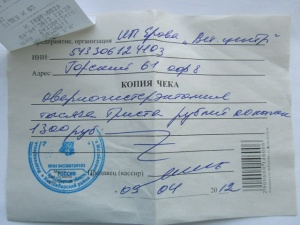 Предприятие, организация ИП Ярова "Вет. центр"
ИНН 543306124103
Адрес Горский 61 оф 8
КОПИЯ ЧЕКА
овариогистерэктомия
тысяча триста рублей копеек
1300 руб
Продавец (кассир)
09 04 2012